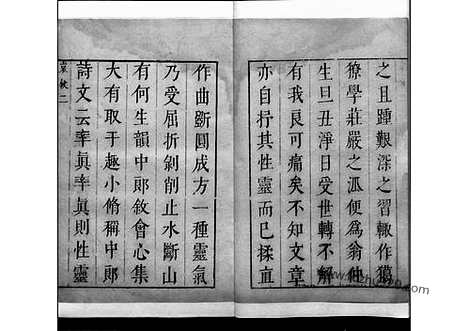 之且踵艱深之習輙作獦
獠學莊嚴之派便爲翁仲
生旦丑淨日受世轉不解
有我良可痛矣不知文章
亦自行其性靈而已揉直
作曲斷圓成方一種靈氣
乃受屈折剝削止水斷山
有何生韻中郎敘會心集
大有取于趣小脩稱中郎
詩文云率眞率眞則性靈